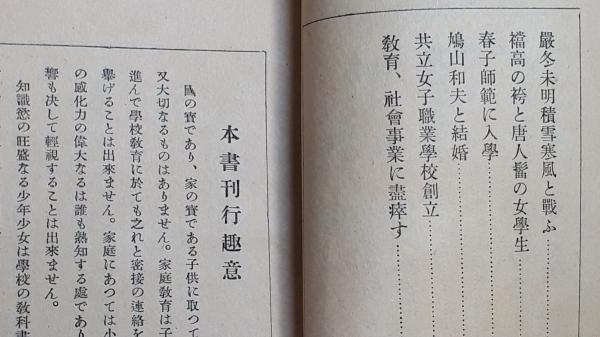 嚴冬未明積雪寒風と戰ふ
襠高の袴と唐人髷の女學生
春子師範に入學
鳩山和夫と結婚
共立女子職業學校創立
敎育、社會事業に盡瘁す
本書刊行趣意
國の寳であり、家の寳である子供に取つて
又大切なるものはありません。家庭敎育は子
進んで學校敎育に於ても之れと密接の連絡を
擧げることは出來ません。家庭にあつては小
の感化力の偉大なるは誰も熟知する處であり
響も決して輕視することは出來ません。
知識慾の旺盛なる少年少女は學校の敎科書